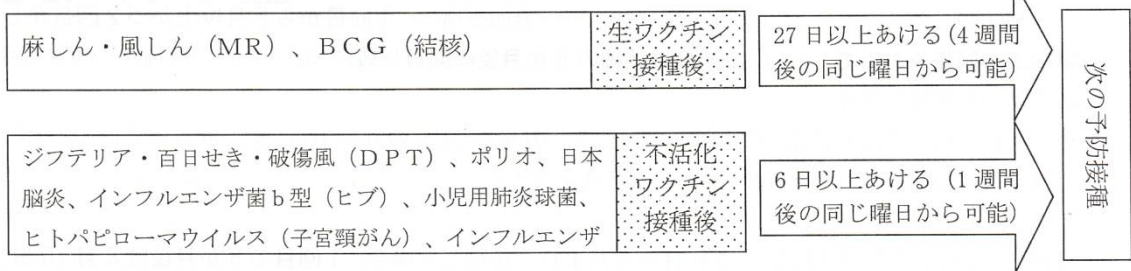 麻しん・風しん（MR）、ＢＣＧ（結核）
生ワクチン
接種後
27 日以上あける（4 週間
後の同じ曜日から可能）
ジフテリア・百日せき・破傷風（ＤＰＴ）、ポリオ、日本
脳炎、インフルエンザ菌ｂ型（ヒブ）、小児用肺炎球菌、
ヒトパピローマウイルス（子宮頸がん）、インフルエンザ
不活化
ワクチン
接種後
6 日以上あける（1 週間
後の同じ曜日から可能）
次の予防接種